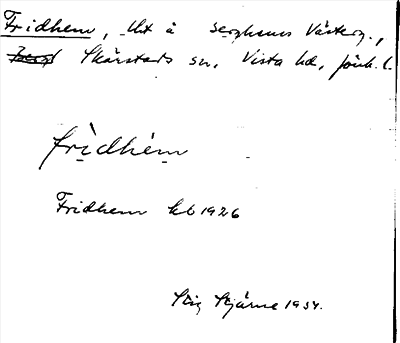 Fridhem, lht å Serghems Västerg.,
Skärstads sn, Vista hd, Jönk. l.
frìdhém
Fridhem kb 1926
Stig Stjärne 1934.